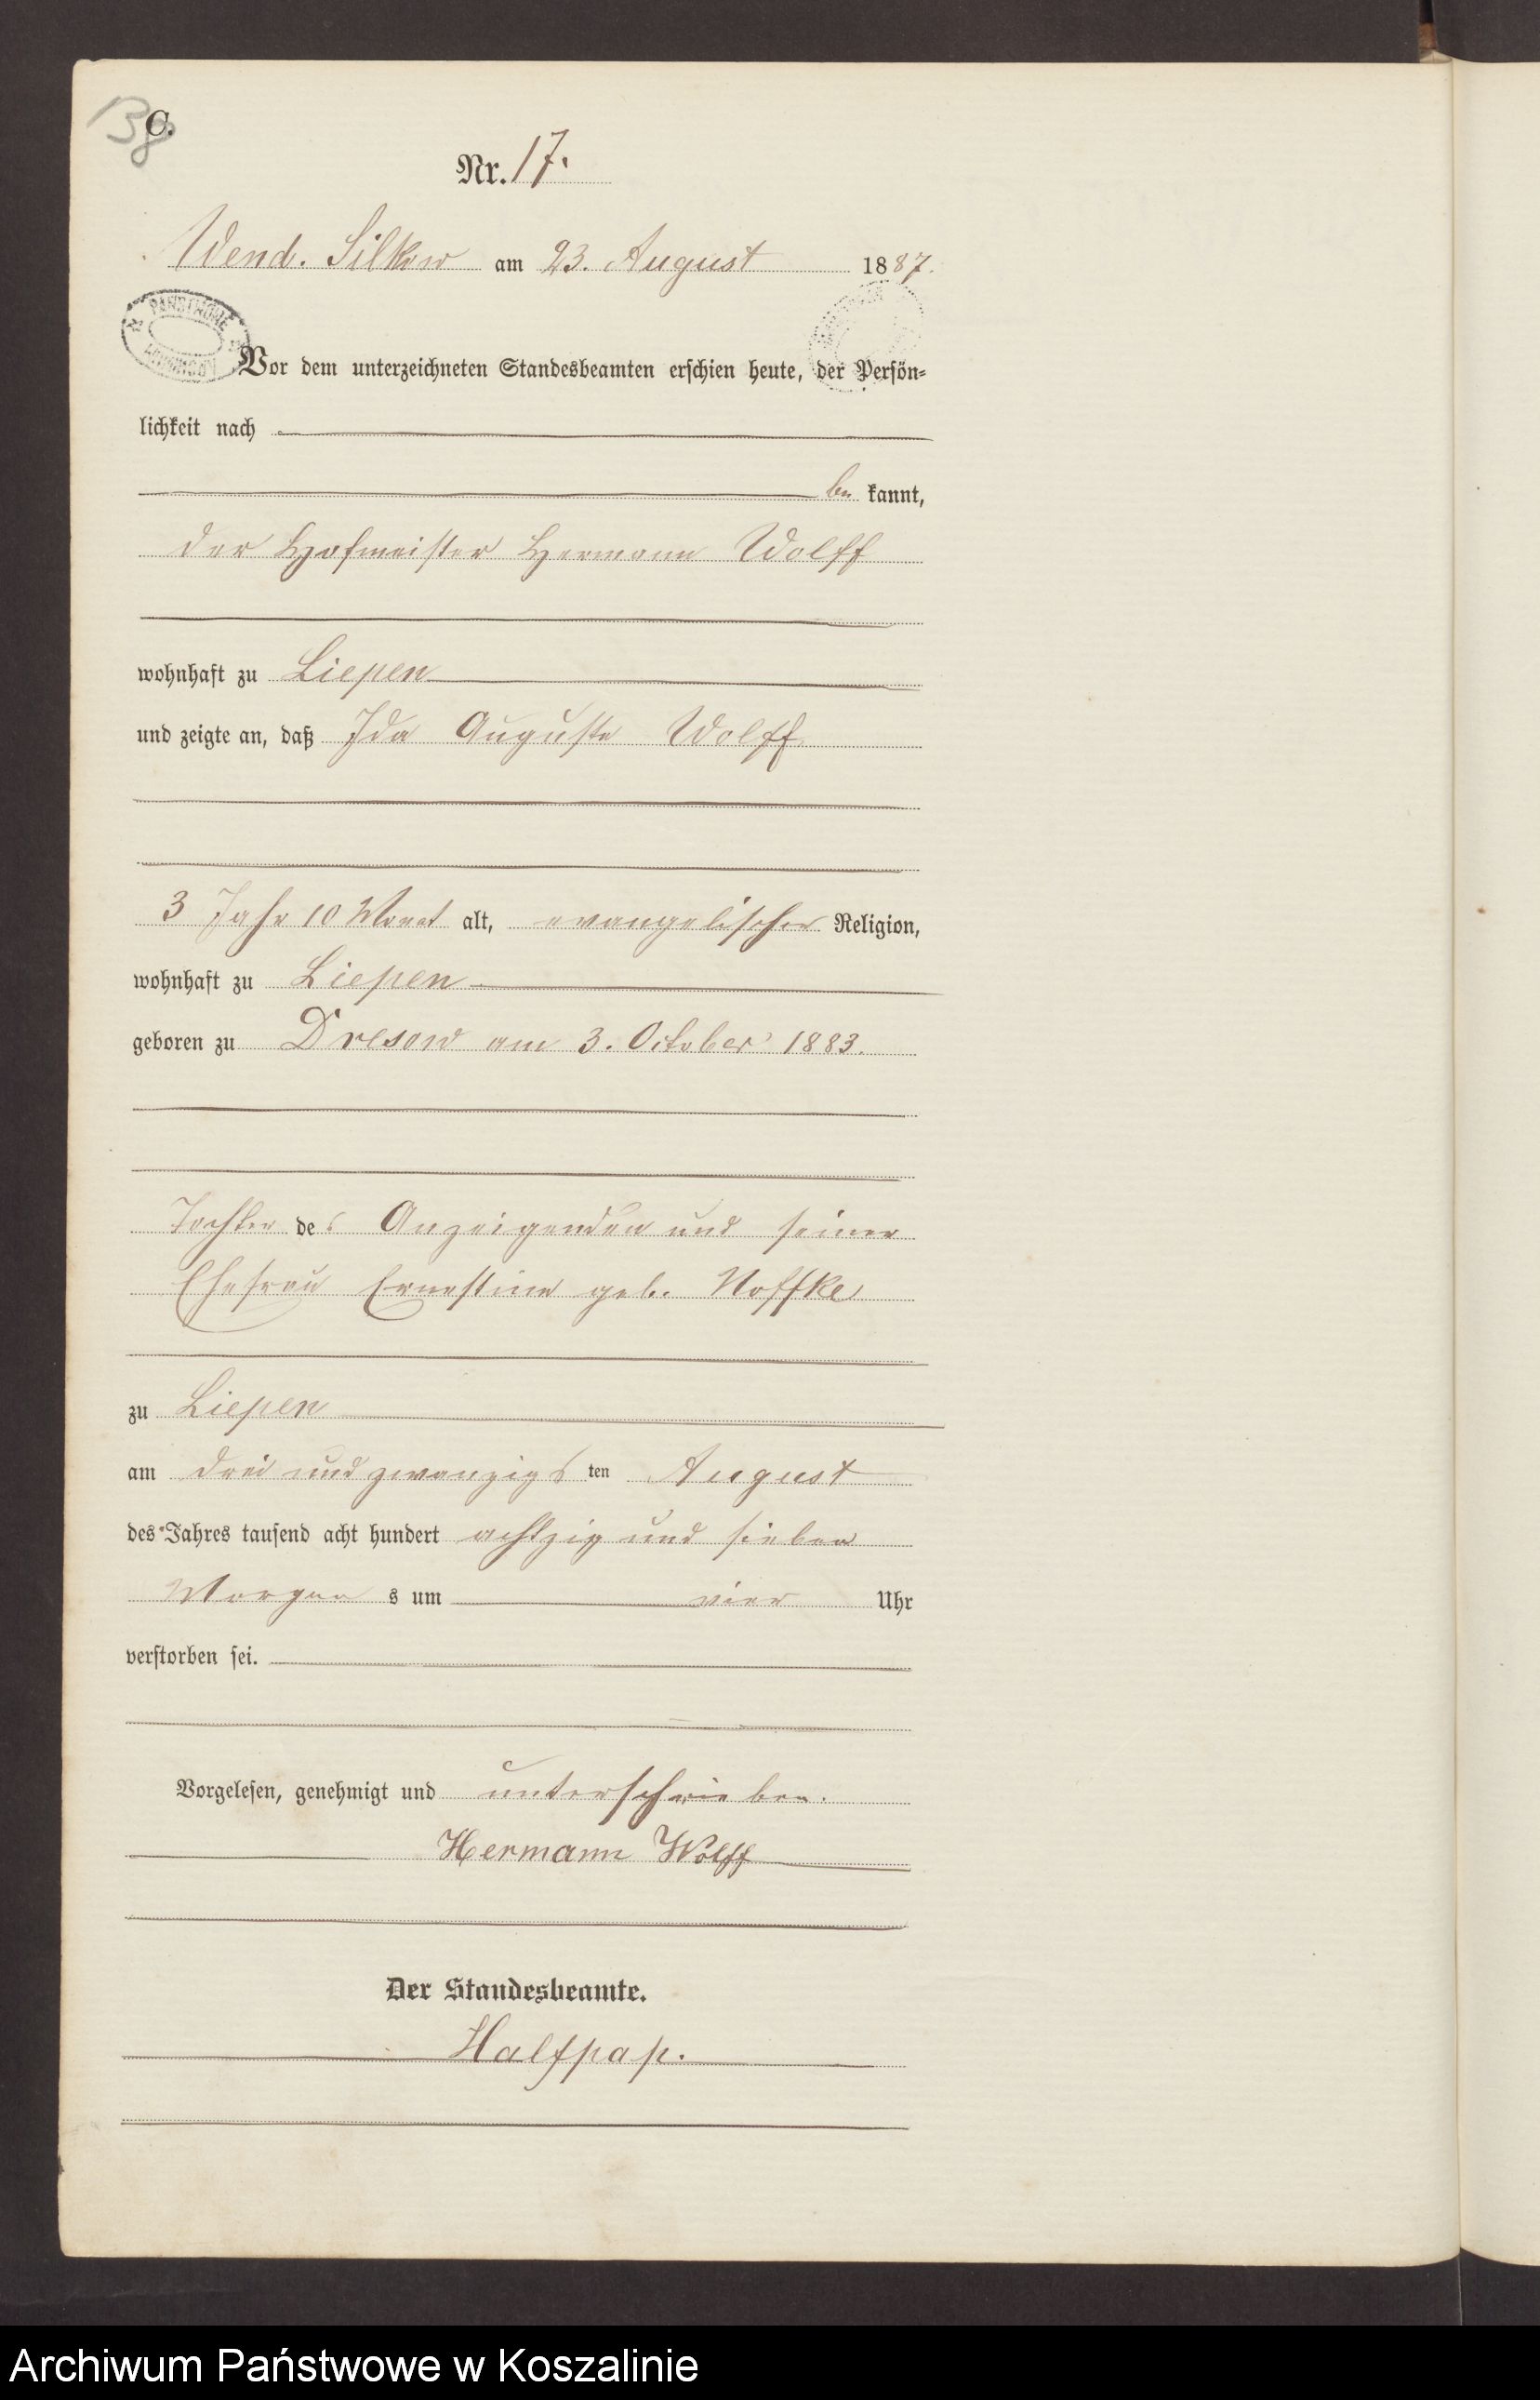 C.
Nr. 17.
Wend. Silkow am 23. August 1887.
PAŃSTWOWE
Vor dem unterzeichneten Standesbeamten erschien heute, der Persön-
lichkeit nach
be kannt,
der Hofmeister Hermann Wolff
wohnhaft zu Liepen
und zeigte an, daß Ida Auguste Wolff
3 Jahr 10 Monat alt, evangelischer Religion,
wohnhaft zu Liepen
geboren zu Dresow am 3. October 1883.
Tochter des Anzeigenden und seiner
Ehefrau Ernestine geb. Noffke
zu Liepen
am drei und zwanzigs ten August
des Jahres tausend acht hundert achtzig und sieben
Morgen s um vier Uhr
verstorben sei.
Vorgelesen, genehmigt und unterschrieben.
Hermann Wolff
Der Standesbeamte.
Halfpap.
Archiwum Państwowe w Koszalinie